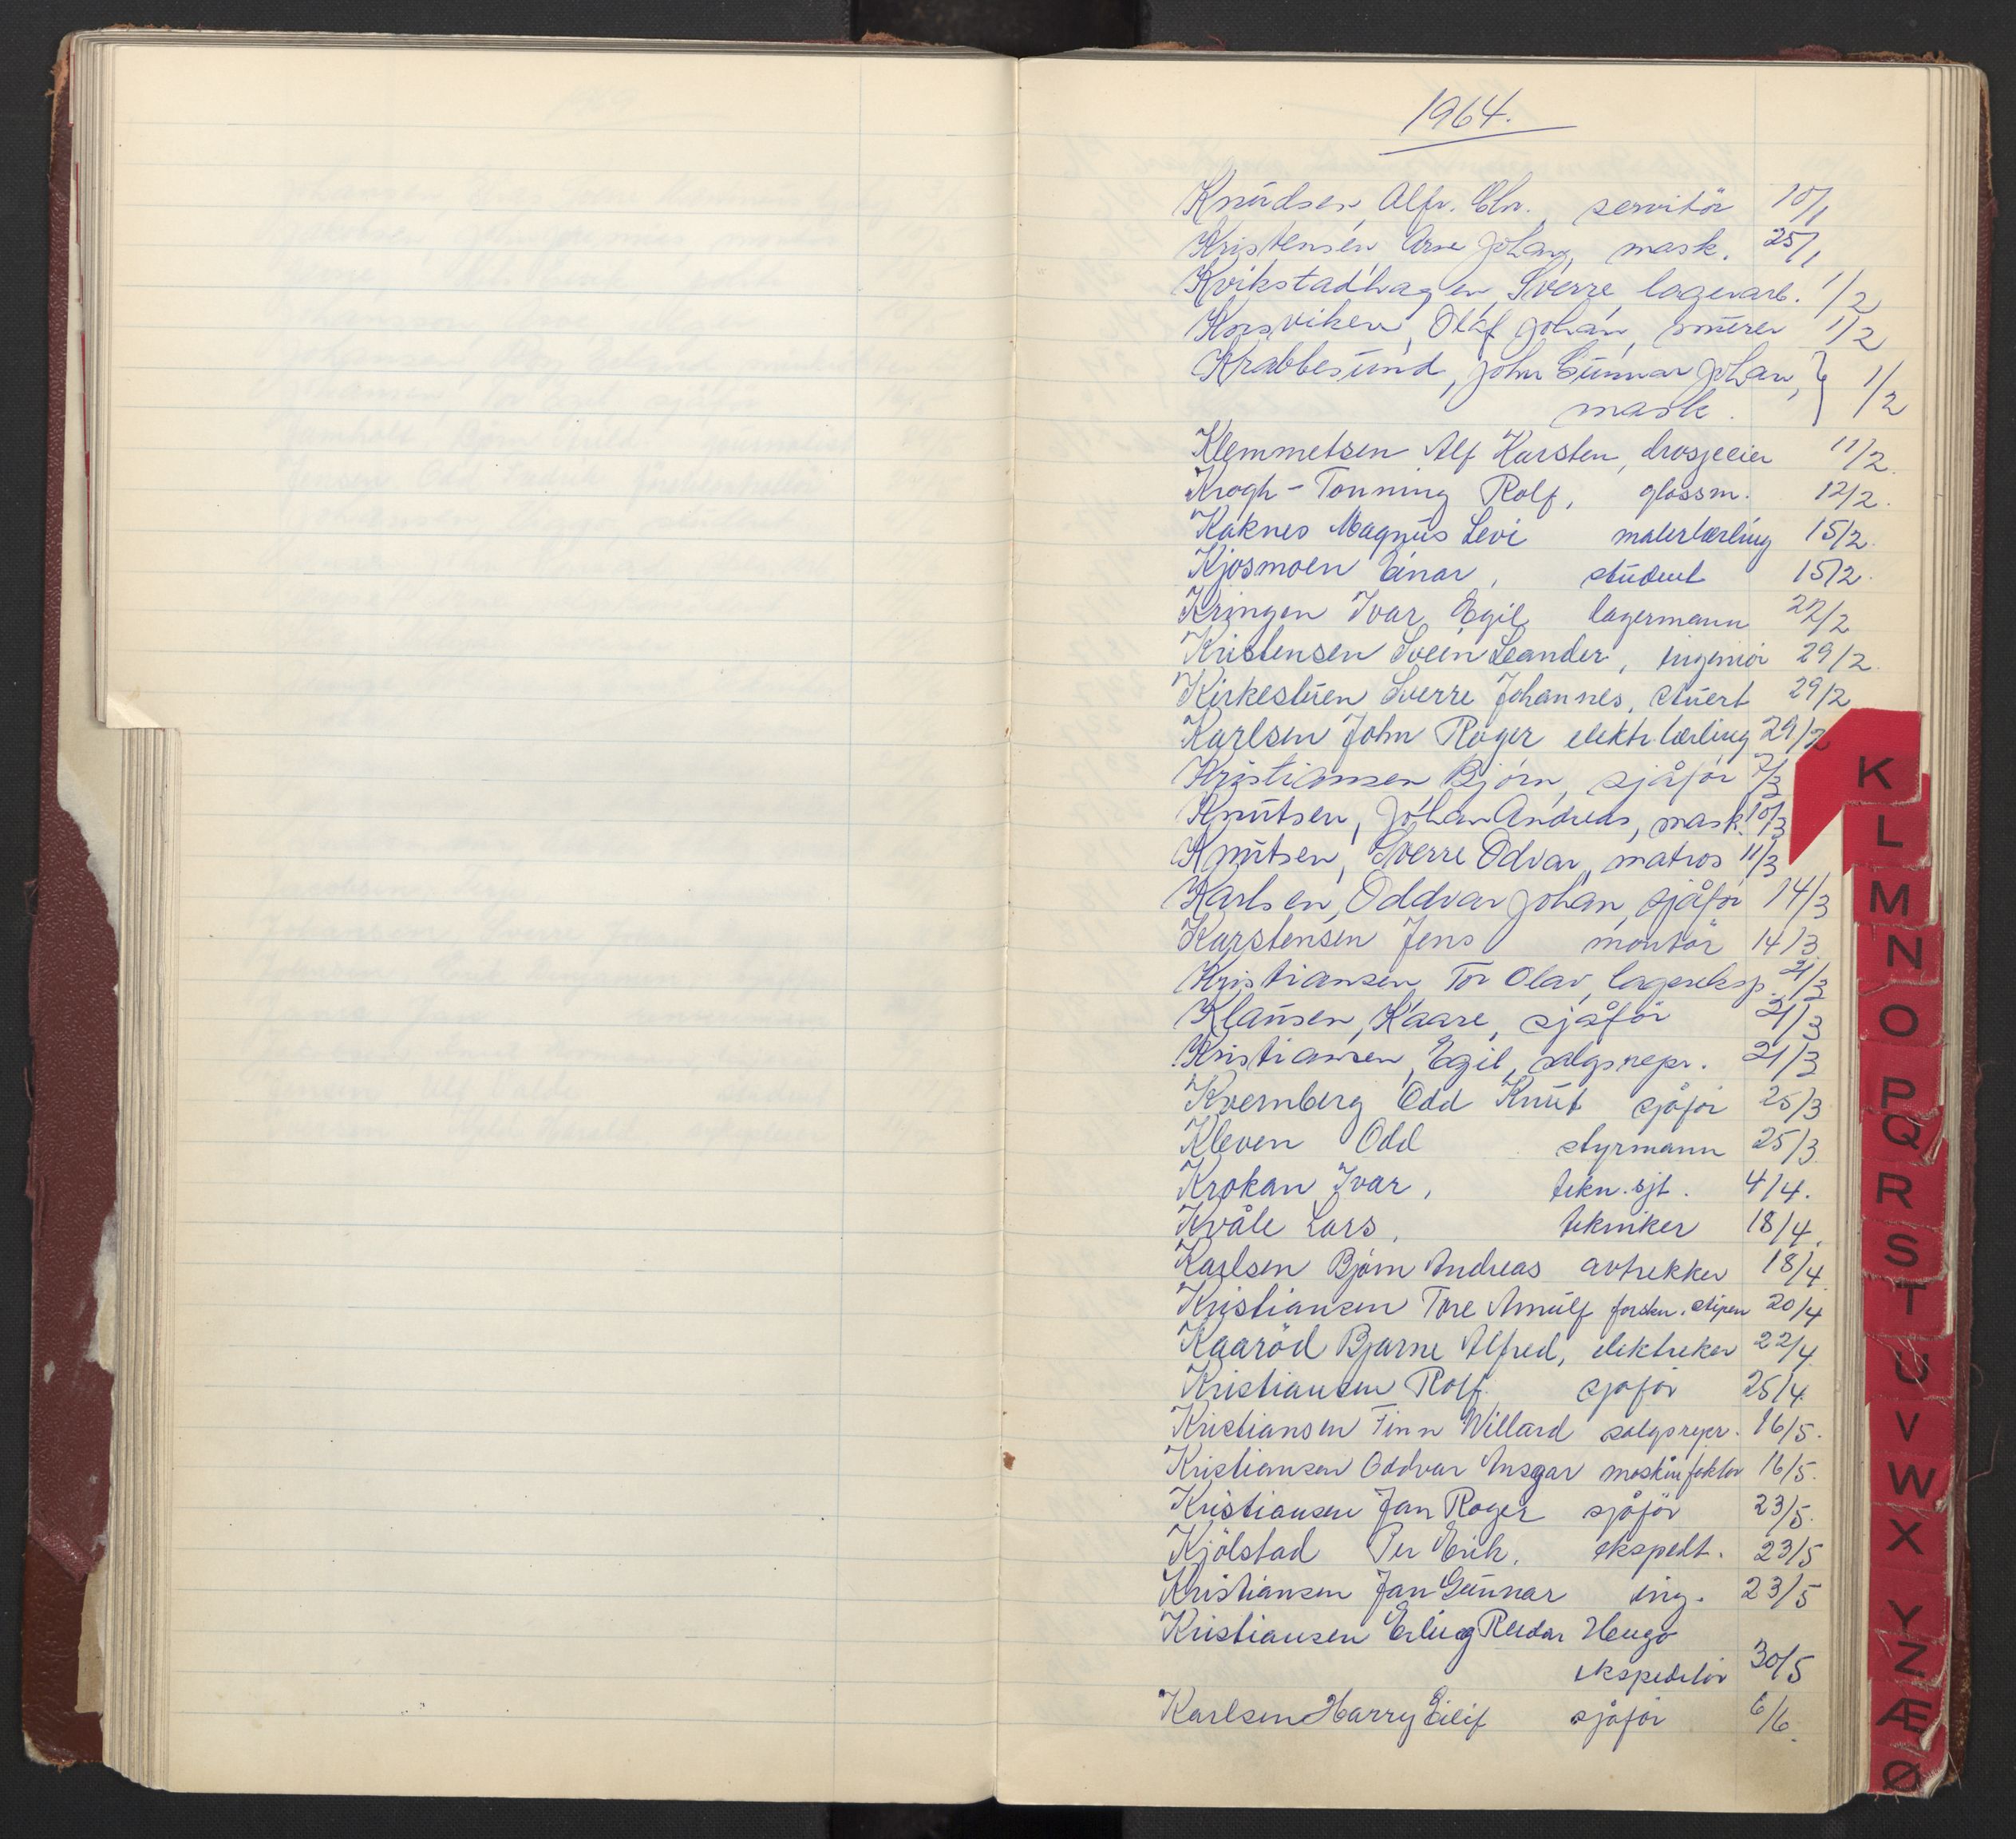 1964.
Knudsen, Alfr. Chr. servitör 10/1
Kristensen, Arne Johan, mask. 25/1
Kvikstadhagen, Sverre, lagerarb. 1/2
Korsviken, Olaf Johan, murer 1/2
Krabbesund, John Gunnar Johan, } 1/2
mask.
Klemmetsen Alf Karsten, drosjeeier 11/2.
Krogh-Tonning Rolf, glassm. 12/2.
Kaknes Magnus Levi malerlærling 15/2.
Kjosmoen Einar, student 15/2.
Kringen Ivar Egil lagermann 22/2
Kristensen Svein Leander, ingeniör 29/2.
Kirkestuen Sverre Johannes, stuert 29/2
Karlsen John Roger elektr.lærling 29/2
Kristiansen Björn, sjåför 7/3
Knutsen, Johan Andreas, mask. 10/3
Knutsen, Sverre Odvar, matros 11/3
Karlsen, Oddvar Johan, sjåför 14/3
Karstensen Jens montör 14/3.
Kristiansen, Tor Olav, lagereksp. 21/3
Klausen, Kaare, sjåför 21/3
Kristiansen, Egil, salgsrepr. 21/3
Kvernberg Odd Knut sjåför 25/3
Kleven Odd styrmann 25/3.
Krokan Ivar, tekn.sjt. 4/4.
Kvåle Lars, tekniker 18/4.
Karlsen Björn Andreas avtrekker 18/4.
Kristiansen Tore Arnulf forskn.stipen 20/4
Kaaröd Bjarne Alfred, elektriker 22/4.
Kristiansen Rolf. sjåför 25/4.
Kristiansen Finn Willard salgsrepr. 16/5.
Kristiansen Oddvar Ansgar maskinfaktor 16/5.
Kristiansen Jan Roger sjåför 23/5.
Kjölstad Per Erik. ekspedt. 23/5
Kristiansen Jan Gunnar ing. 23/5
Kristiansen Erling Reidar Hugo
ekspeditör 30/5
Karlsen Harry Eilif sjåför 6/6.
K
L
M
N
O
P
Q
R
S
T
U
V
W
X
Y
Z
Æ
Ø